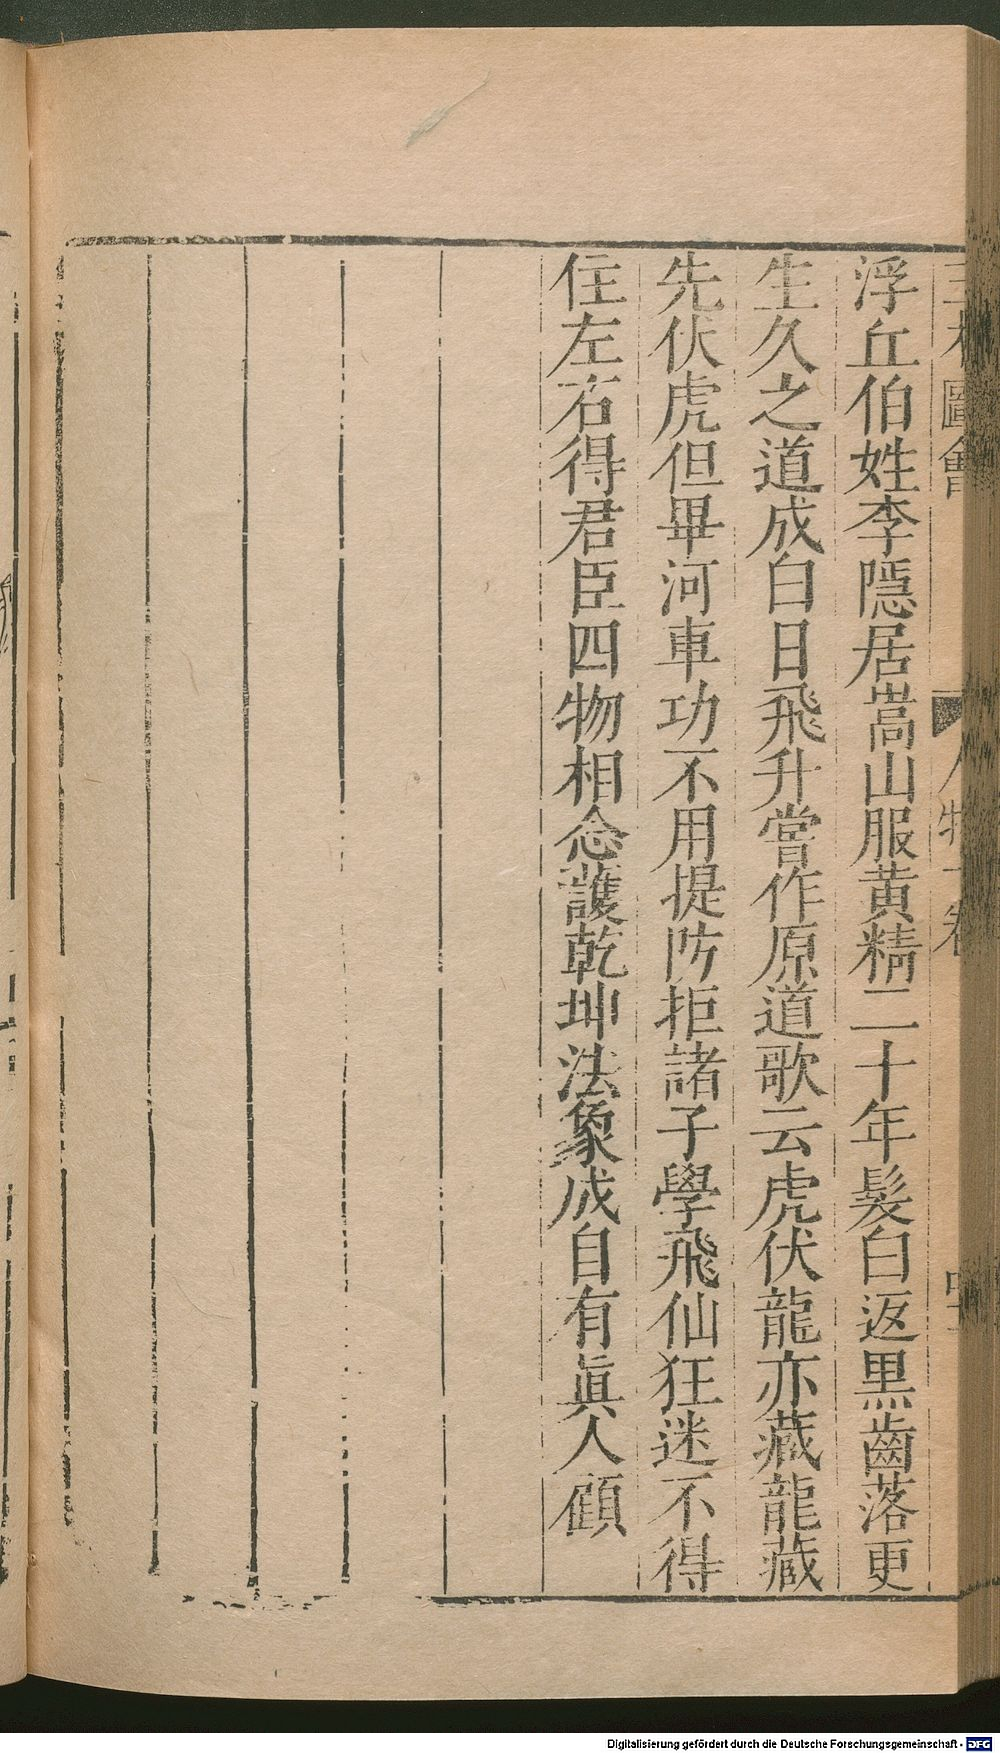 三才圖會 人物十卷
浮丘伯姓李隱居嵩山服黃精二十年髮白返黑齒落更
生久之道成白日飛升嘗作原道歌云虎伏龍亦藏龍藏
先伏虎但畢河車功不用提防拒諸子學飛仙狂迷不得
住左右得君臣四物相念護乾坤法象成自有眞人顧
Digitalisierung gefördert durch die Deutsche Forschungsgemeinschaft - DFG